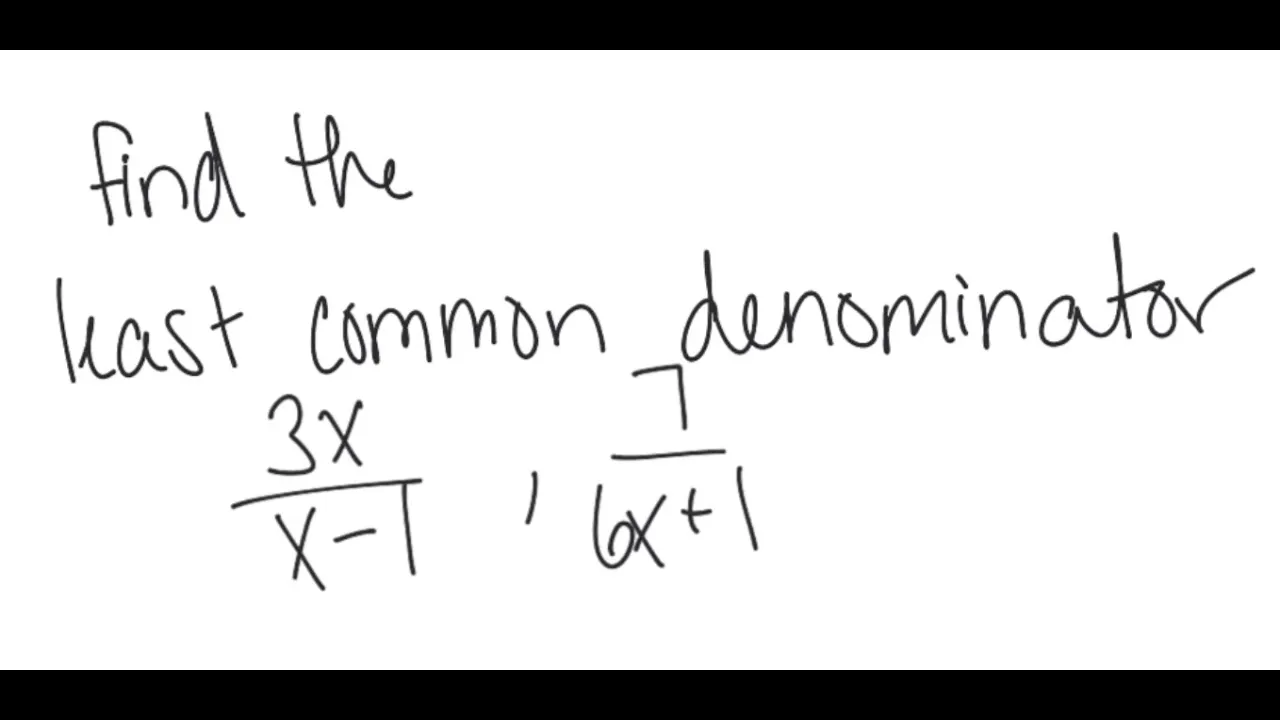 find the
least common denominator
3x/x-1 , 7/6x+1